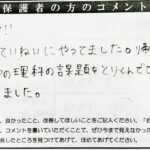 保護者の方のコメント
!!
ていねいにやってました。
の理科の課題をとりくんで
ました。
良かったこと、改善してほしいことをご記入ください。
コメントを書いていただくことで、ぜひ今まで見えなかった
長したところを見つけてあげて、ほめてあげてください。